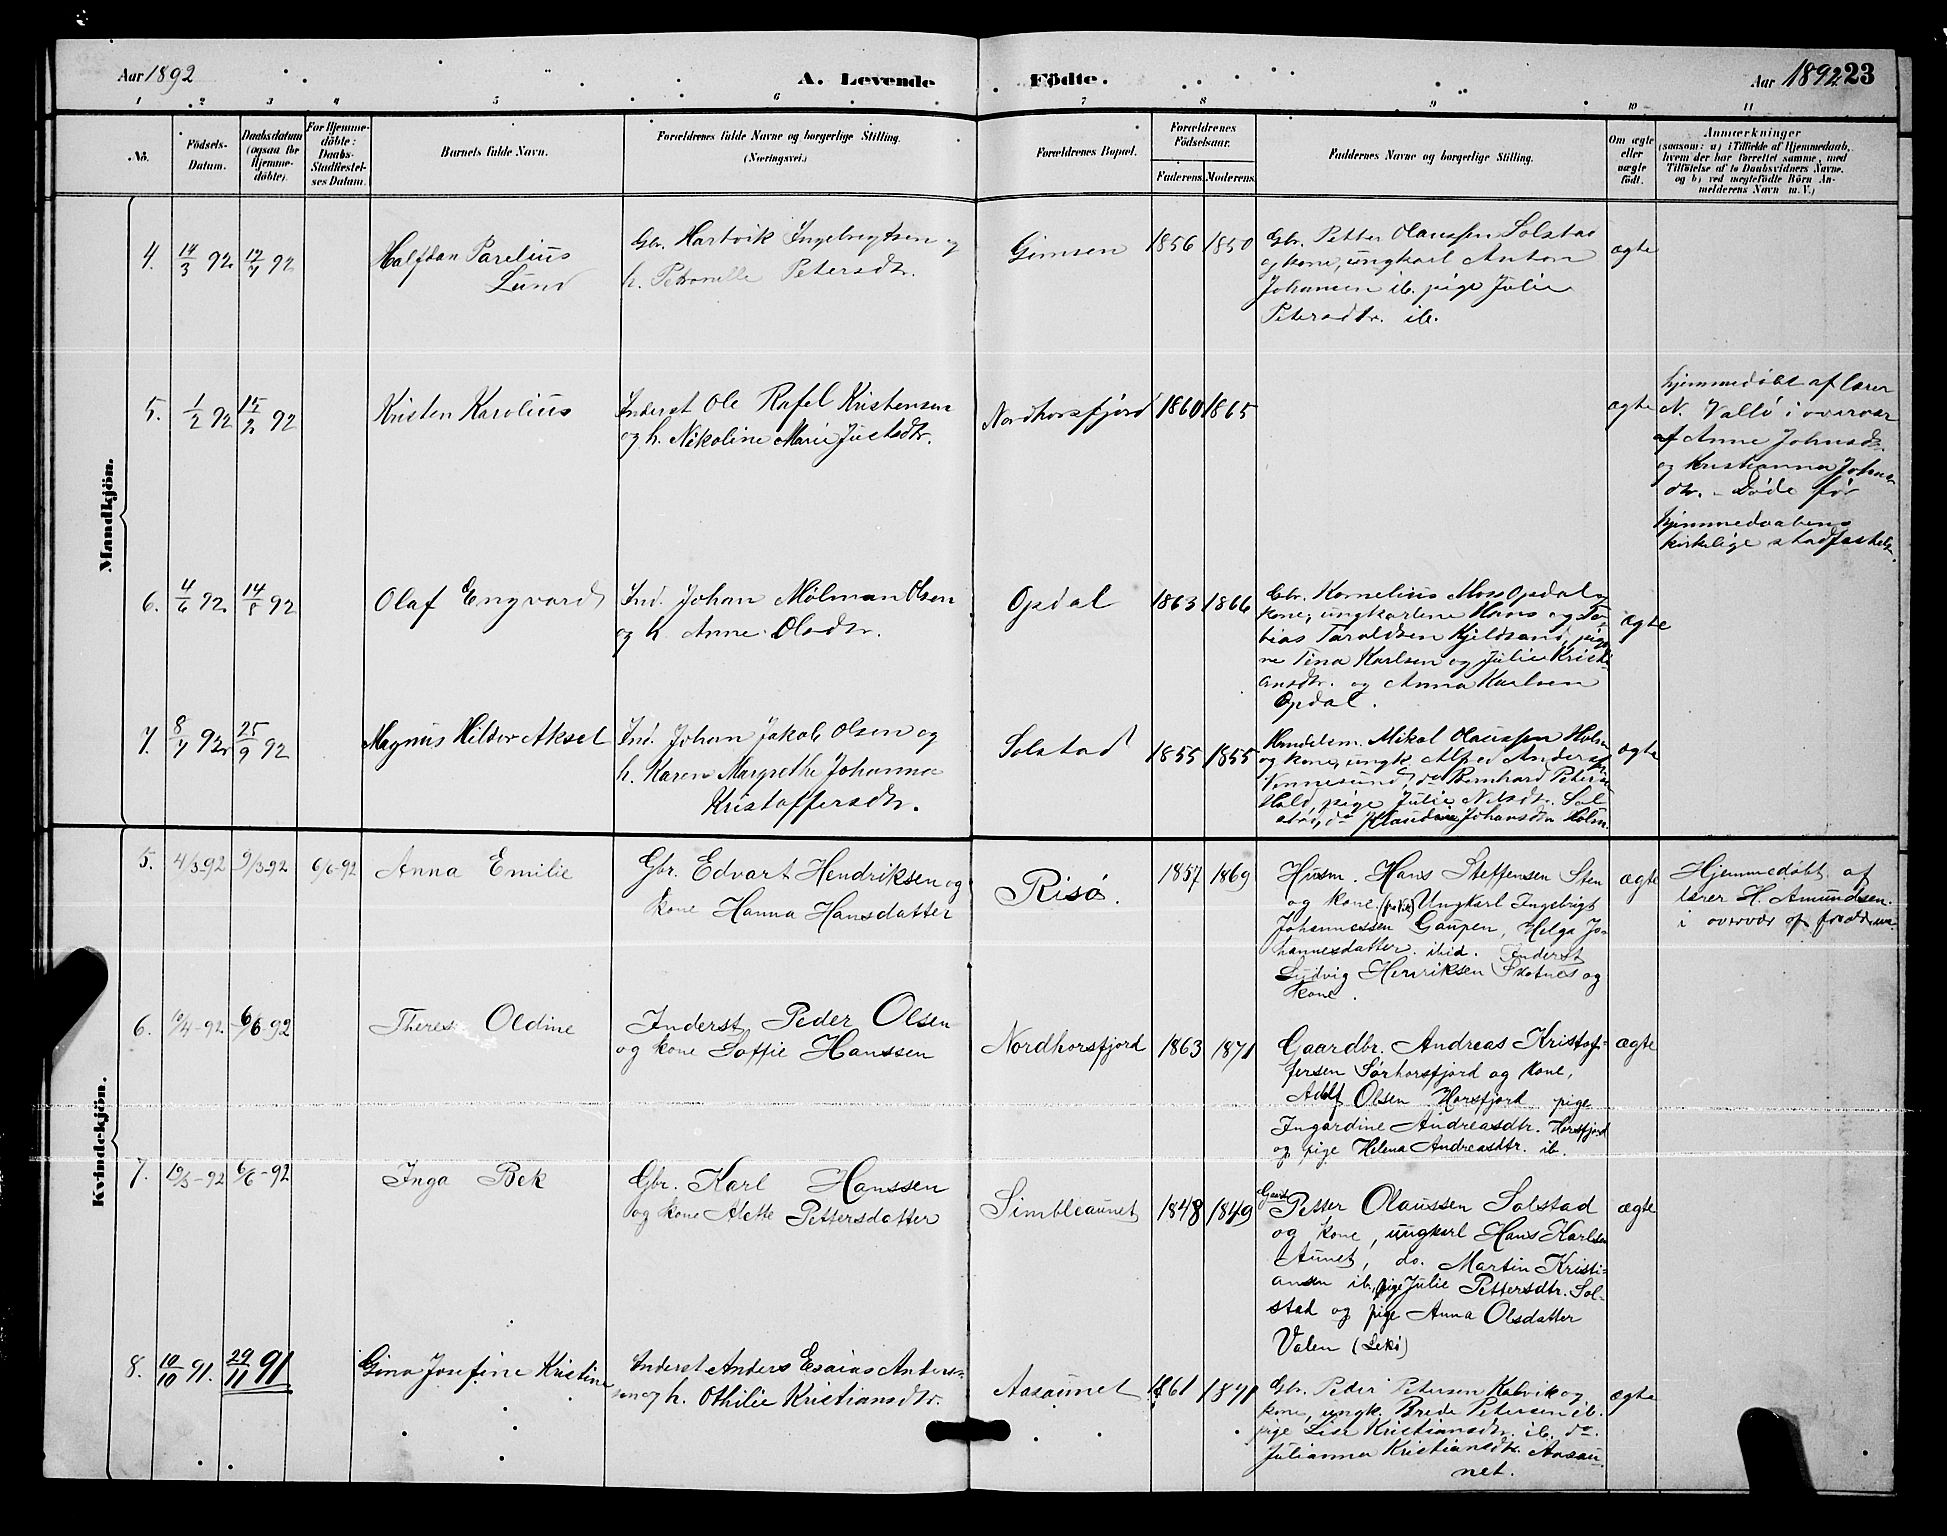 Aar 1892 A. Levende Födte. Aar 1892 23
1 2 3 4 5 6 7 8 9 10 11
No.
Födsels-
Datum.
Daabsdatum
(ogsaa for
Hjemme-
döbte).
For Hjemme-
döbte:
Daabs-
Stadfæstel-
ses Datum.
Barnets fulde Navn.
Forældrenes fulde Navne og borgerlige Stilling.
(Næringsvei.)
Forældrenes Bopæl.
Forældrenes
Födselsaar.
Faderens. Moderens.
Faddernes Navne og borgerlige Stilling.
Om ægte
eller
uægte
födt.
Anmærkninger
(saasom: a) i Tilfælde af Hjemmedaab,
hvem der har forrettet samme, med
Tilföielse af to Daabsvidners Navne.
og b) ved uægtefödte Börn An-
melderens Navn m. V.)
Mandkjön.
4. 14/3 92 12/7 92
Halfdan Parelius
Lund
Gbr. Hartvik Ingebrigtsen og
h. Petronelle Petersdtr.
Gimsen
1856 1850
Gbr. Petter Olaussen Solstad
og kone, ungkarl Anton
Johansen ib. pige Julie
Petersdtr. ib.
ægte
5. 1/2 92 15/2 92
Kristen Karolius
Inderst Ole Rafel Kristensen
og h. Nikoline Marie Justsdtr.
Nordhorsfjord
1860 1865
ægte
hjemmedöbt af lærer
N. Vallö i overvær
af Anne Johnsdtr.
og Kristianna Johns
dtr. - Döde för
hjemmedaabens
kirkelige stadfæstelse
6. 4/6 92 14/8 92
Olaf Engvard
Ind. Johan Mölman Olsen
og h. Anne Olsdtr.
Opdal
1863 1866
Gbr. Kornelius Moss Opdal og
kone, ungkarlene Hans og To-
bias Taraldsen Kjeldsand, pige
ne Tina Karlsen og Julie Kristi-
ansdtr. og Anna Karlsen
Opdal.
ægte
7. 8/7 92 25/9 92
Magnus Hildor Aksel
Ind. Johan Jakob Olsen og
h. Karen Margrethe Johanna
Kristoffersdtr.
Solstad
1855 1855
Handelsm. Mikal Olaussen Holm
og kone, ungk. Alfred Anderssen
Vennesund, do Bernhard Peters
Hald, pige Julie Nilsdtr. Sol
stad, do Klaudine Johansdtr Holm.
ægte
Kvindekjön.
5. 4/3-92 9/3-92 6/6-92
Anna Emilie
Gbr. Edvart Hendriksen og
kone Hanna Hansdatter
Risö.
1857 1869
Husm. Hans Steffensen Sten
og kone. Ungkarl Ingebrigt
Johannessen Gaupen, Helga Jo-
hannesdatter ibid. Inderst
Ludvig Henriksen Skotnes og
kone.
ægte
Hjemmedöbt af
lærer H. Amundsen.
i overvær af forældrene
6. 10/4-92 6/6-92
Therese Oldine
Inderst Peder Olsen
og kone Soffie Hanssen
Nordhorsfjord
1863 1871
Gaardbr. Andreas Kristof-
fersen Sörhorsfjord og kone,
Adolf Olsen Horsfjord pige
Ingardine Andreasdtr. Horsfjord
og pige Helena Andreasdtr. ib.
ægte
7. 10/3-92 6/6-92
Inga Bek
Gbr. Karl Hanssen
og kone Alette Pettersdatter
Simbleaunet
1848 1849
Gaardbr Petter Olaussen Solstad
og kone, ungkarl Hans Karlsen
Aunet, do. Martin Kristi-
ansen ib, pige Julie Pettersdtr. Sol-
stad og pige Anna Olsdatter
Valen (Lekö)
ægte
8. 10/10 91. 29/11 91
Gina Josefine Kristine
Inderst Anders Esaias Anders-
sen og h. Othilie Kristiansdtr.
Aasaunet
1861 1871
Gbr. Peder Petersen Kalvik og
kone, ungk. Brede Petersen ib.
pige Lise Kristiansdtr. ib. do.
Julianna Kristiansdtr. Aasau-
net.
ægte